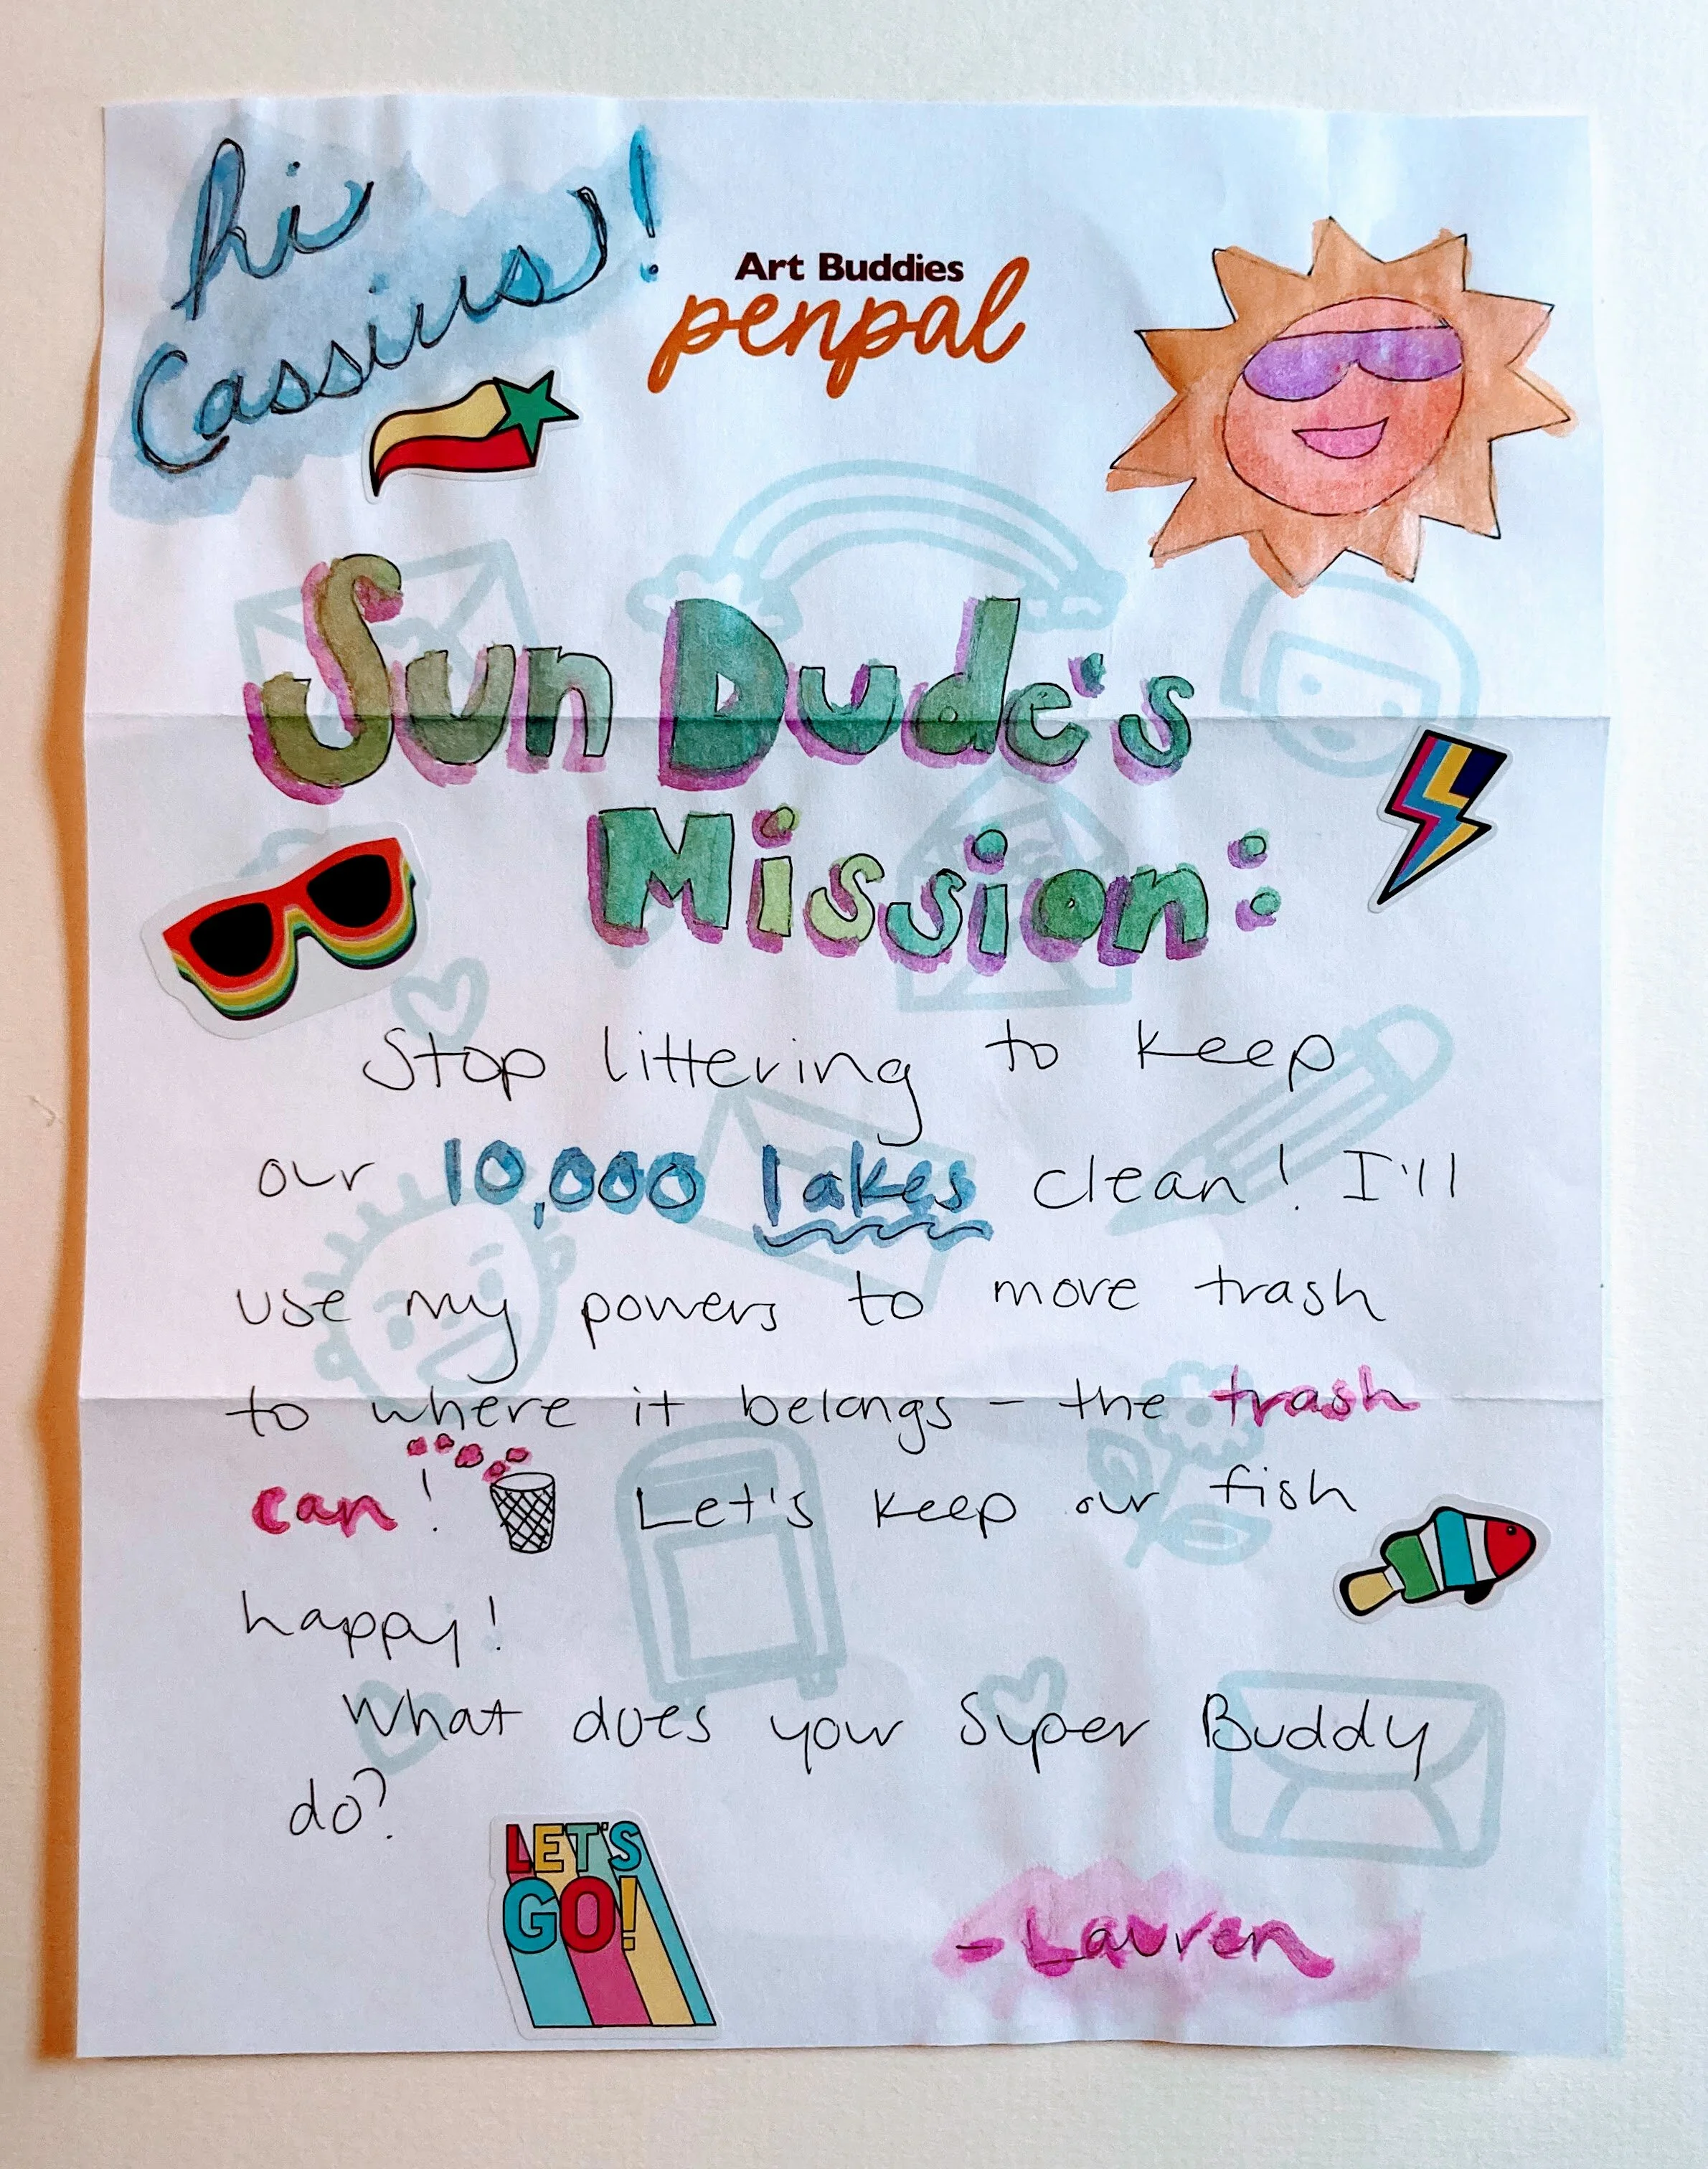 hi
Cassius!
Art Buddies
penpal
Sun Dude's
Mission:
Stop littering to keep
our 10,000 lakes clean! I'll
use my powers to move trash
to where it belongs - the trash
can! Let's keep our fish
happy!
What does your Super Buddy
do?
LET'S
GO!
- Lauren